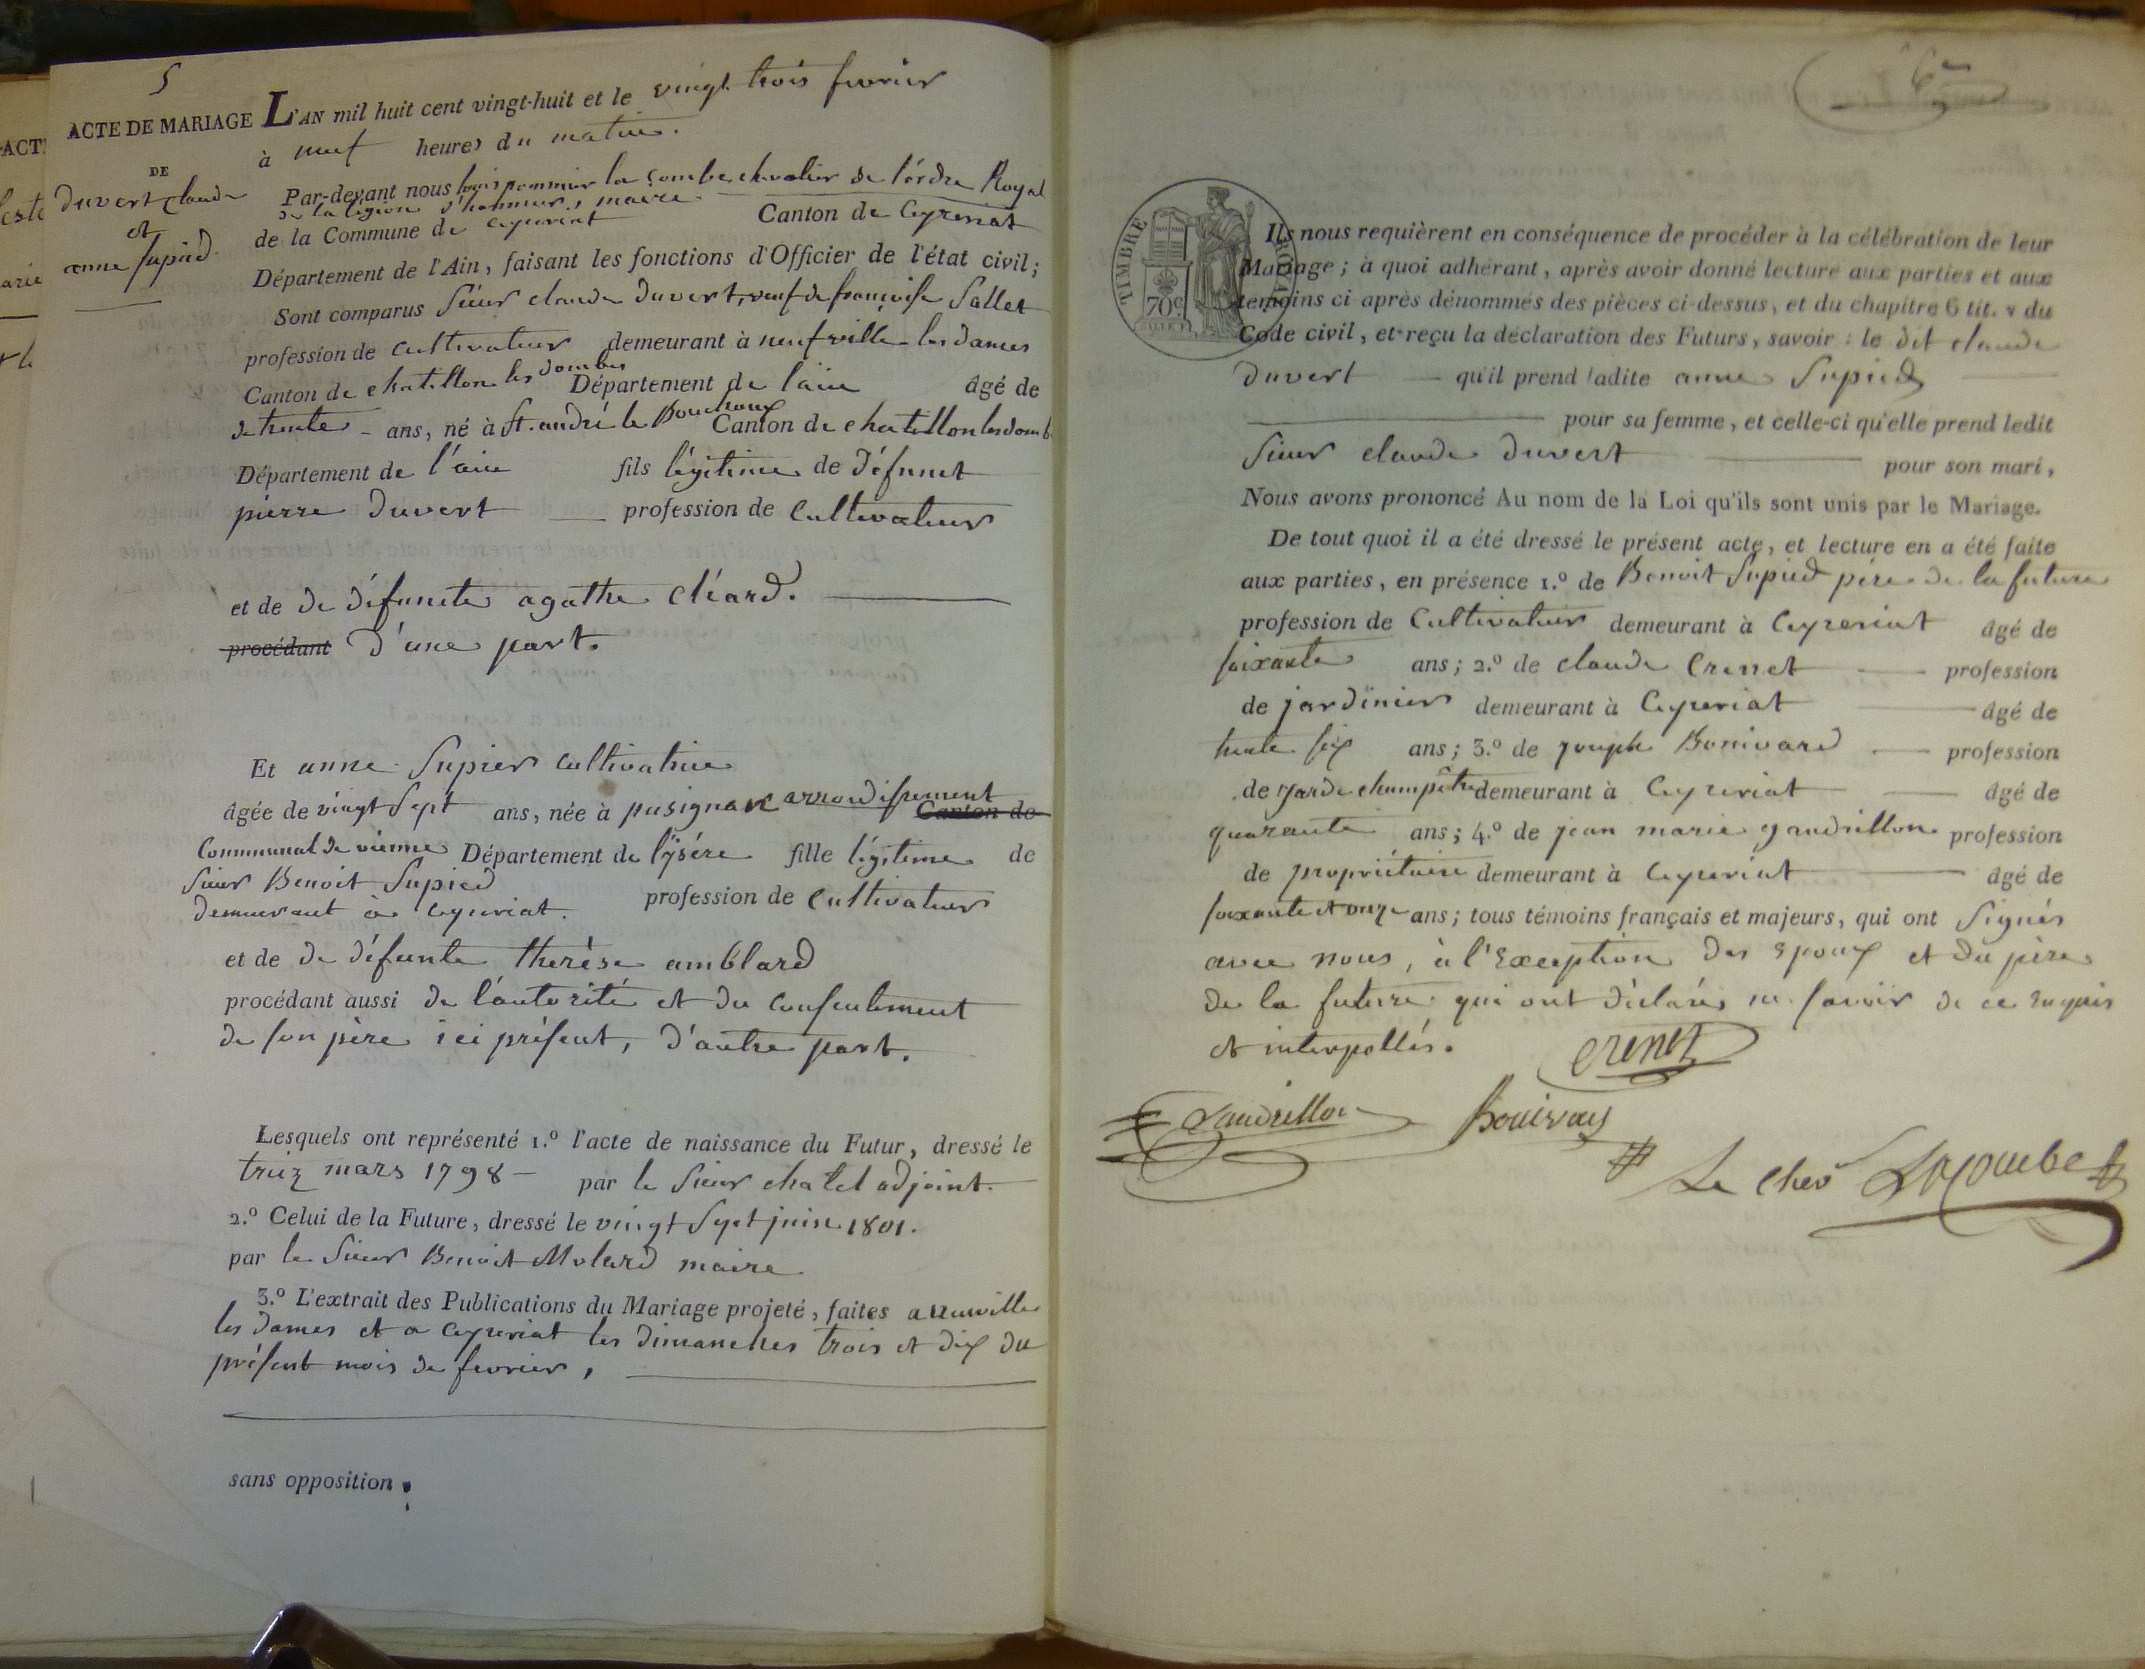 5
ACTE DE MARIAGE
DE
duvert claude
et
anne Supied
L'AN mil huit cent vingt-huit et le vingt trois fevrier
à neuf heures du matin.
Par-devant nous la combe chevalier de l'ordre Royal
de la légion d'honneur, maire
de la Commune de Ceyzeriat Canton de Ceyzeriat
Département de l'Ain, faisant les fonctions d'Officier de l'état civil;
Sont comparus Sieur claude duvert, veuf de françoise Sallet
profession de cultivateur demeurant à neufville les dames
Canton de chatillon les dombes Département de l'ain âgé de
de trente ans, né à St. andré le Bouchoux Canton de chatillon les domb
Département de l'ain fils légitime de défunct
pierre duvert profession de cultivateur
et de de défuncte agathe cléard.
procédant d'une part.
Et anne Supier cultivatrice
âgée de vingt Sept ans, née à pusignan arrondissement Canton de
Communal de vienne Département de l'ysére fille légitime de
Sieur Benoit Supied
demeurant à Ceyzeriat. profession de cultivateur
et de de défunte therèse amblard
procédant aussi de l'autorité et du consentement
de son père ici présent, d'autre part.
Lesquels ont représenté 1.º l'acte de naissance du Futur, dressé le
treiz mars 1798 — par le Sieur chatel adjoint.
2.º Celui de la Future, dressé le vingt Sept juin 1801.
par le Sieur Benoit Molard maire
3.º L'extrait des Publications du Mariage projeté, faites a neuville
les dames et a Ceyzeriat les dimanches trois et dix du
présent mois de fevrier,
sans opposition.
6
TIMBRE ROYAL
70c
Ils nous requièrent en conséquence de procéder à la célébration de leur
Mariage; à quoi adhérant, après avoir donné lecture aux parties et aux
témoins ci après dénommés des pièces ci-dessus, et du chapitre 6 tit. v du
Code civil, et reçu la déclaration des Futurs, savoir: le dit claude
duvert — qu'il prend ladite anne Supied
pour sa femme, et celle-ci qu'elle prend ledit
Sieur claude duvert pour son mari,
Nous avons prononcé Au nom de la Loi qu'ils sont unis par le Mariage.
De tout quoi il a été dressé le présent acte, et lecture en a été faite
aux parties, en présence 1.º de Benoit Supied père de la future
profession de Cultivateur demeurant à Ceyzeriat âgé de
soixante ans; 2.º de claude Crenet profession
de jardinier demeurant à Ceyzeriat âgé de
trente six ans; 3.º de joseph Bonivard profession
de garde champêtre demeurant à Ceyzeriat âgé de
quarante ans; 4.º de jean marie gandrillon profession
de propriétaire demeurant à Ceyzeriat âgé de
soixante et onze ans; tous témoins français et majeurs, qui ont Signés
avec nous, à l'Exception des Epoux et du père
de la future qui ont déclarés ne savoir de ce enquis
et interpellés.
crenet
Gandrillon Bonivard
Le Chev Lacombe